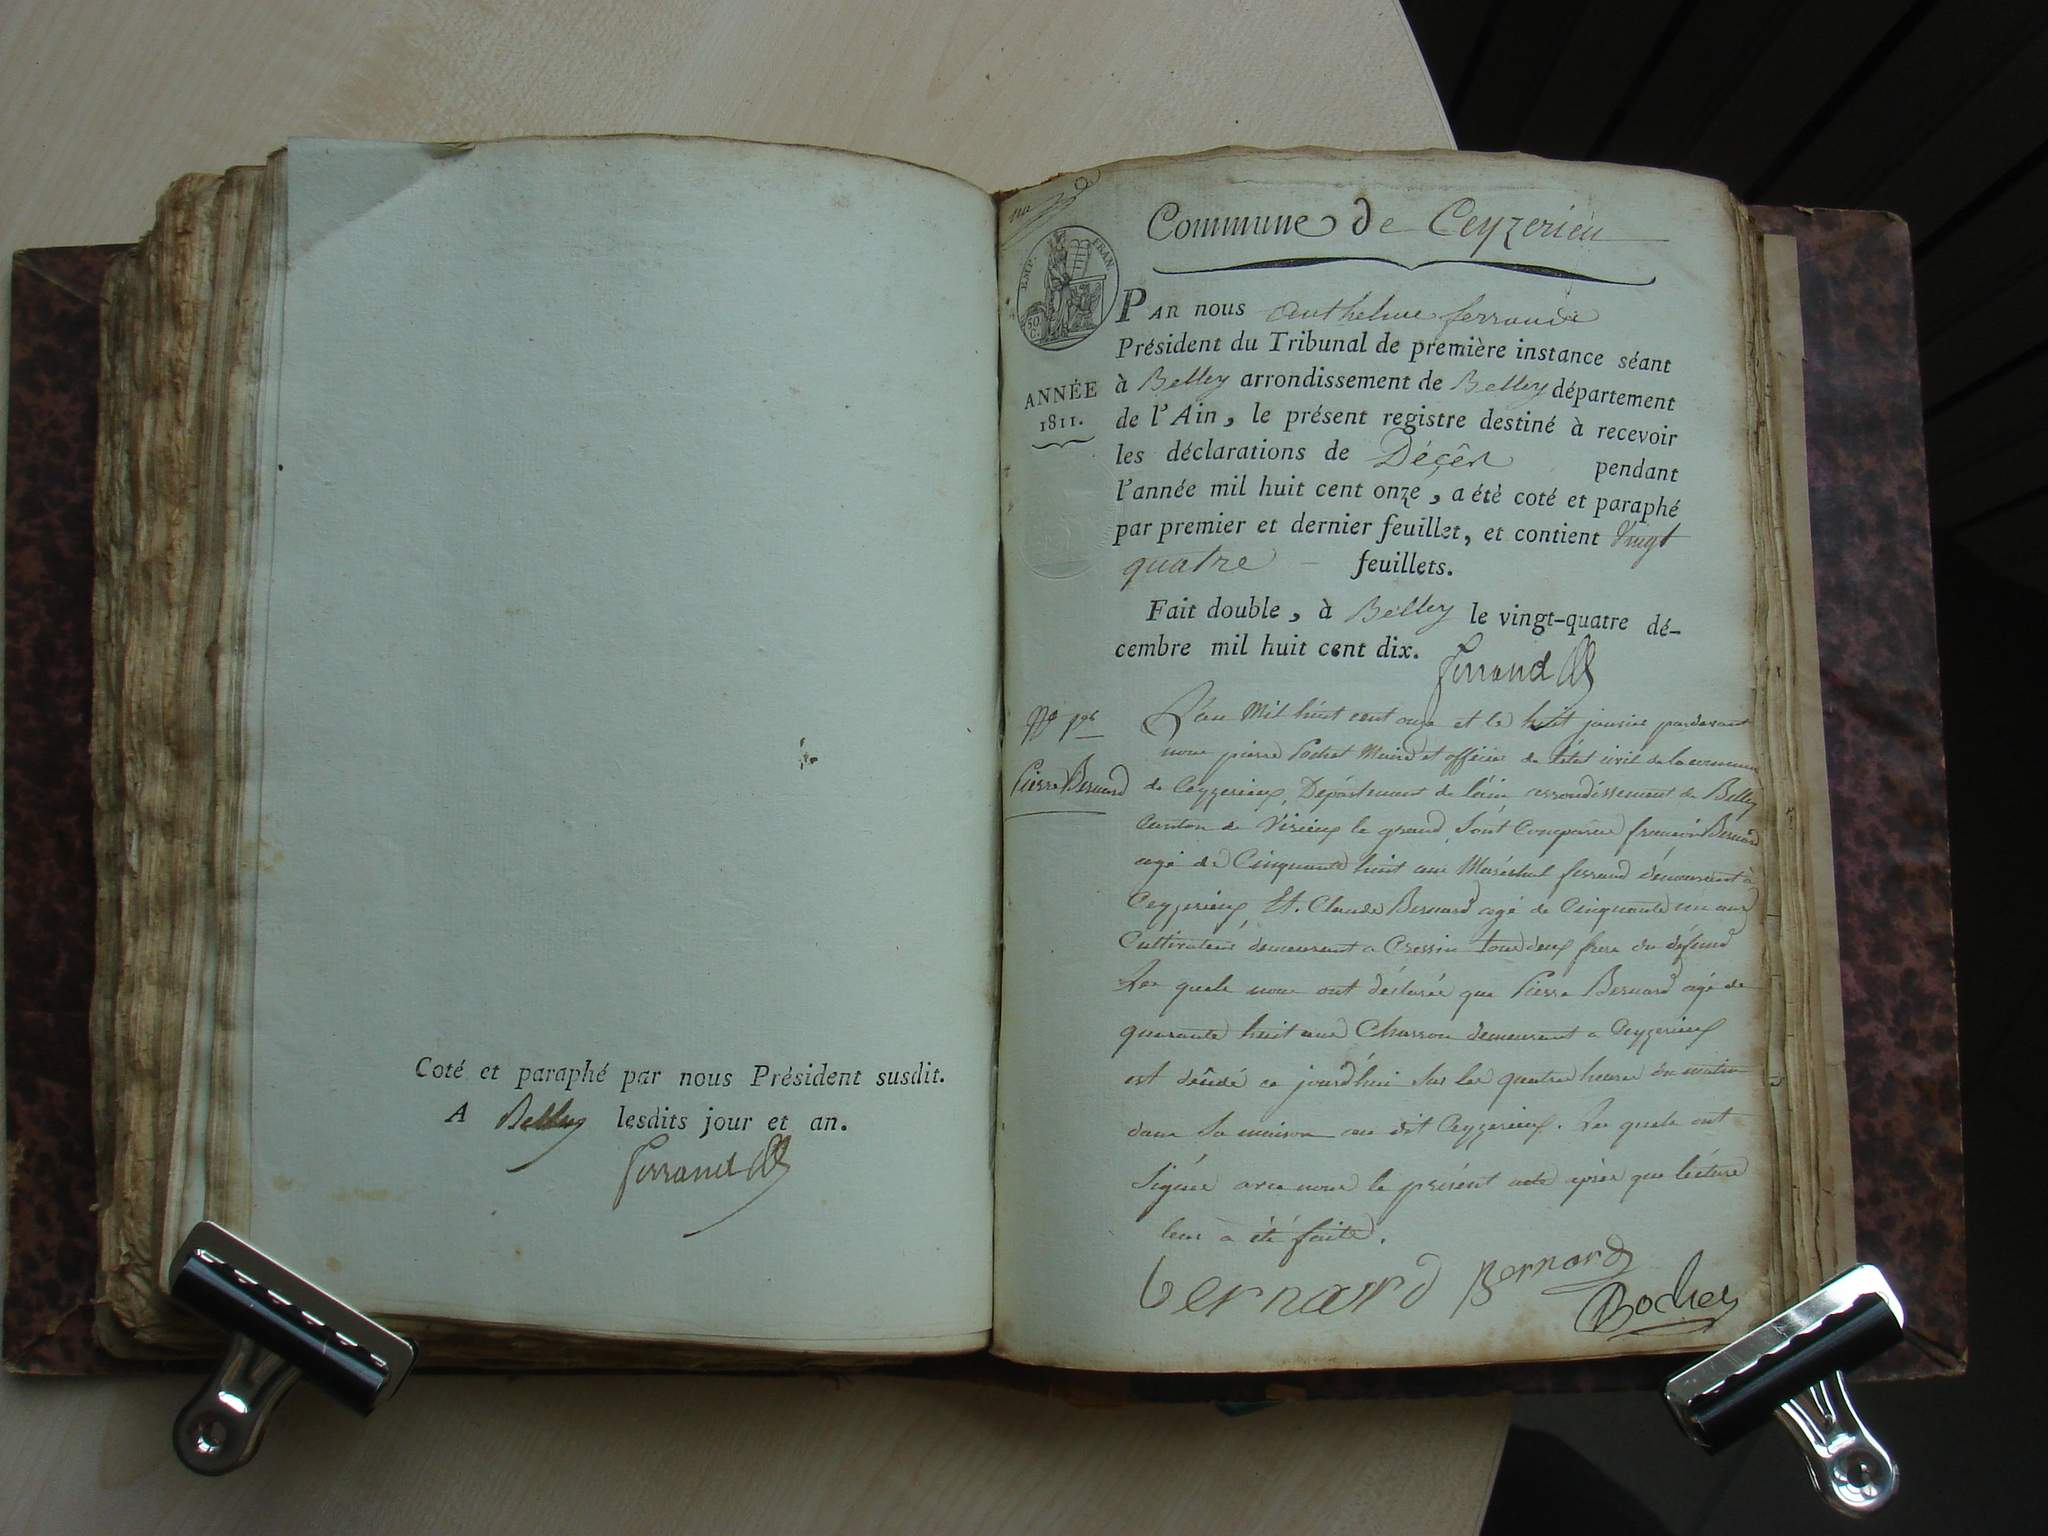 Coté et paraphé par nous Président susdit.
A Belley lesdits jour et an.
Ferrand
Commune de Ceyzerieu
EMP. FRAN
50 C.
ANNÉE
1811.
PAR nous Anthelme ferrand
Président du Tribunal de première instance séant
à Belley arrondissement de Belley département
de l'Ain, le présent registre destiné à recevoir
les déclarations de Décès pendant
l'année mil huit cent onze, a été coté et paraphé
par premier et dernier feuillet, et contient Vingt
quatre feuillets.
Fait double, à Belley le vingt-quatre dé-
cembre mil huit cent dix.
Ferrand
Nº 1er
Pierre Bernard
L'an Mil huit cent onze et le huit janvier pardevant
nous pierre Pochet Maire et officier de l'état civil de la commune
de Ceyzerieux, Département de l'ain arrondissement de Belley
Canton de Virieux le grand, Sont Comparus françois Bernard
agé de Cinquante huit ans Maréchal ferrand demeurant à
Ceyzerieux, Et. Claude Bernard agé de Cinquante un ans
Cultivateur demeurant a Cressin tous deux frere du défunt
Les quels nous ont déclarés que Pierre Bernard agé de
quarante huit ans Charron demeurant a Ceyzerieux
est décédé ce jourd'hui Sur les quatre heures du matin
dans Sa maison au dit Ceyzerieux. Les quels ont
Signés avec nous le présent acte après que lécture
leur a été faite.
bernard Bernard
Pochet